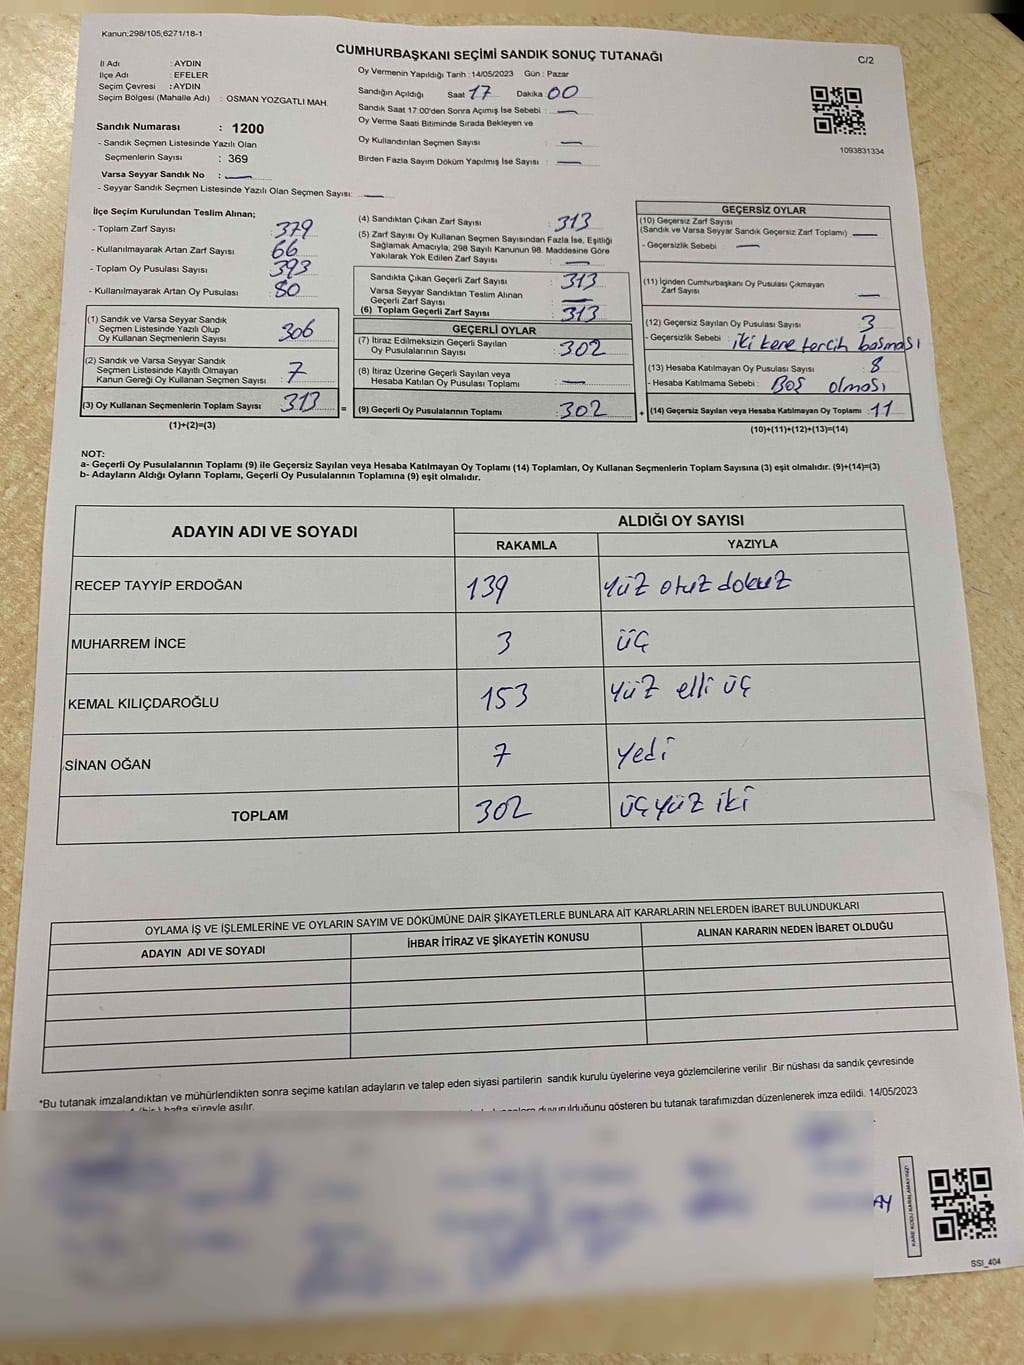 Kanun;298/105,6271/18-1
CUMHURBAŞKANI SEÇİMİ SANDIK SONUÇ TUTANAĞI
C/2
İl Adı : AYDIN
İlçe Adı : EFELER
Seçim Çevresi : AYDIN
Seçim Bölgesi (Mahalle Adı) : OSMAN YOZGATLI MAH.
Sandık Numarası : 1200
- Sandık Seçmen Listesinde Yazılı Olan
Seçmenlerin Sayısı : 369
Varsa Seyyar Sandık No : —
- Seyyar Sandık Seçmen Listesinde Yazılı Olan Seçmen Sayısı: —
Oy Vermenin Yapıldığı Tarih : 14/05/2023 Gün : Pazar
Sandığın Açıldığı Saat 17 Dakika 00
Sandık Saat 17:00'den Sonra Açımış İse Sebebi : —
Oy Verme Saati Bitiminde Sırada Bekleyen ve
Oy Kullandırılan Seçmen Sayısı : —
Birden Fazla Sayım Döküm Yapılmış İse Sayısı : —
1093831334
İlçe Seçim Kurulundan Teslim Alınan;
- Toplam Zarf Sayısı : 379
- Kullanılmayarak Artan Zarf Sayısı : 66
- Toplam Oy Pusulası Sayısı : 393
- Kullanılmayarak Artan Oy Pusulası : 80
(1) Sandık ve Varsa Seyyar Sandık
Seçmen Listesinde Yazılı Olup
Oy Kullanan Seçmenlerin Sayısı : 306
(2) Sandık ve Varsa Seyyar Sandık
Seçmen Listesinde Kayıtlı Olmayan
Kanun Gereği Oy Kullanan Seçmen Sayısı : 7
(3) Oy Kullanan Seçmenlerin Toplam Sayısı : 313
(1)+(2)=(3)
(4) Sandıktan Çıkan Zarf Sayısı : 313
(5) Zarf Sayısı Oy Kullanan Seçmen Sayısından Fazla İse, Eşitliği
Sağlamak Amacıyla; 298 Sayılı Kanunun 98. Maddesine Göre
Yakılarak Yok Edilen Zarf Sayısı : —
Sandıkta Çıkan Geçerli Zarf Sayısı : 313
Varsa Seyyar Sandıktan Teslim Alınan
Geçerli Zarf Sayısı : —
(6) Toplam Geçerli Zarf Sayısı : 313
GEÇERLİ OYLAR
(7) İtiraz Edilmeksizin Geçerli Sayılan
Oy Pusulalarının Sayısı : 302
(8) İtiraz Üzerine Geçerli Sayılan veya
Hesaba Katılan Oy Pusulası Toplamı : —
= (9) Geçerli Oy Pusulalarının Toplamı : 302
GEÇERSİZ OYLAR
(10) Geçersiz Zarf Sayısı
(Sandık ve Varsa Seyyar Sandık Geçersiz Zarf Toplamı) —
- Geçersizlik Sebebi : —
(11) İçinden Cumhurbaşkanı Oy Pusulası Çıkmayan
Zarf Sayısı : —
(12) Geçersiz Sayılan Oy Pusulası Sayısı : 3
- Geçersizlik Sebebi : iki kere tercih basması
(13) Hesaba Katılmayan Oy Pusulası Sayısı : 8
- Hesaba Katılmama Sebebi : Boş olması
+ (14) Geçersiz Sayılan veya Hesaba Katılmayan Oy Toplamı : 11
(10)+(11)+(12)+(13)=(14)
NOT:
a- Geçerli Oy Pusulalarının Toplamı (9) ile Geçersiz Sayılan veya Hesaba Katılmayan Oy Toplamı (14) Toplamları, Oy Kullanan Seçmenlerin Toplam Sayısına (3) eşit olmalıdır. (9)+(14)=(3)
b- Adayların Aldığı Oyların Toplamı, Geçerli Oy Pusulalarının Toplamına (9) eşit olmalıdır.
ADAYIN ADI VE SOYADI
ALDIĞI OY SAYISI
RAKAMLA YAZIYLA
RECEP TAYYİP ERDOĞAN 139 yüz otuz dokuz
MUHARREM İNCE 3 üç
KEMAL KILIÇDAROĞLU 153 yüz elli üç
SİNAN OĞAN 7 yedi
TOPLAM 302 üçyüz iki
OYLAMA İŞ VE İŞLEMLERİNE VE OYLARIN SAYIM VE DÖKÜMÜNE DAİR ŞİKAYETLERLE BUNLARA AİT KARARLARIN NELERDEN İBARET BULUNDUKLARI
ADAYIN ADI VE SOYADI
İHBAR İTİRAZ VE ŞİKAYETİN KONUSU
ALINAN KARARIN NEDEN İBARET OLDUĞU
*Bu tutanak imzalandıktan ve mühürlendikten sonra seçime katılan adayların ve talep eden siyasi partilerin sandık kurulu üyelerine veya gözlemcilerine verilir .Bir nüshası da sandık çevresinde
hafta süreyle asılır.
duyurulduğunu gösteren bu tutanak tarafımızdan düzenlenerek imza edildi. 14/05/2023
AY
KARE KODU KARALAMAYINIZ!
SSI_404